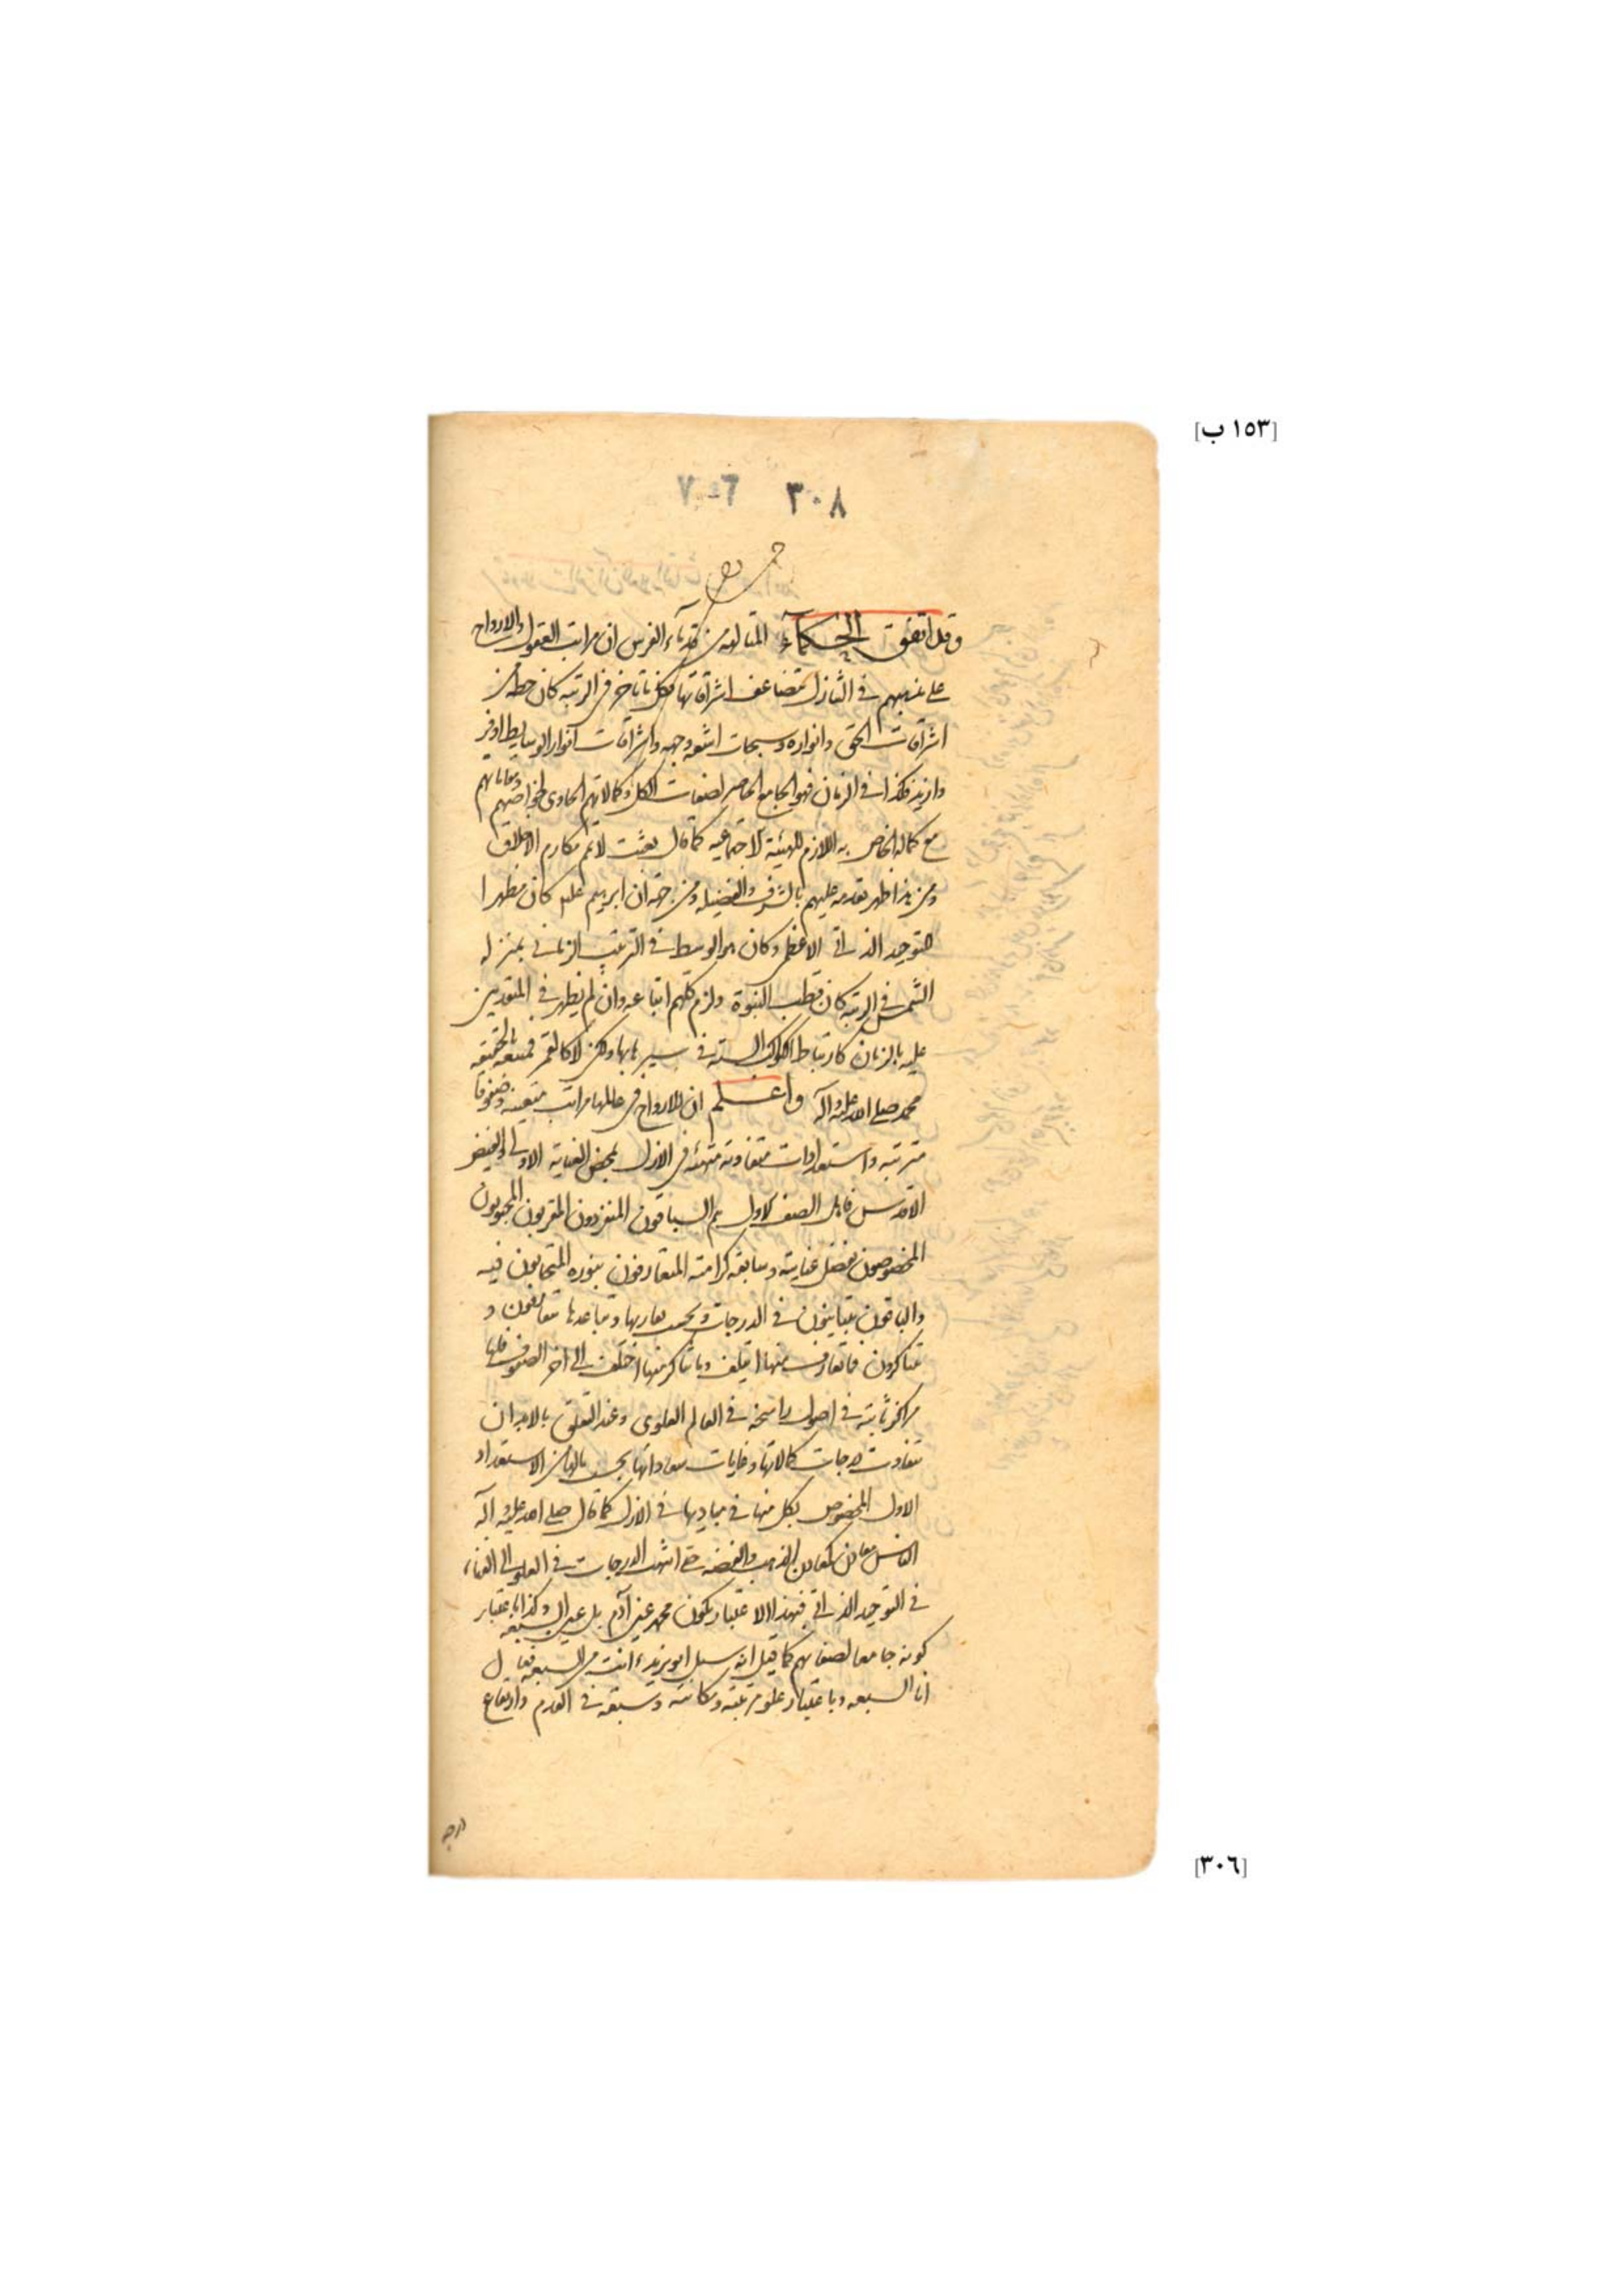 [١٥٣ ب]
٣٠٨ ٦-٧
وقد اتفق الحكماء المتألهة من قدماء الفرس ان مراتب العقول والارواح
على مذهبهم في التنازل تتضاعف اشراقاتها فكل ما تاخر في الرتبة كان حظه من
اشراقات الحق وانواره وسبحات اشعة وجهه واشراقات انوار الوسايط اوفر
وازيد فكذا في الزمان فهو الجامع الحاصر لصفات الكل وكمالاتهم الحاوي لخواصهم ومعانيهم
مع كماله الخاص به اللازم للهيئة الاجتماعيه كما قال بعثت لاتمم مكارم الاخلاق
ومن هذا ظهر تقدمه عليهم بالشرف والفضيله ومن جهة ان ابرهيم عليه كان مظهرا
للتوحيد الذاتي الاعظم وكان هو الوسط في الترتيب الزماني بمنزله
الشمس في الرتبة كان قطب النبوة ولزم كلهم اتباعه وان لم يظهر في المتقدمين
عليه بالزمان كارتباط الكواكب الستة في سيرها بها ولكن لا كالقمر فمتبعه بالحقيقه
محمد صلى الله عليه وآله واعلم ان للارواح في عالمها مراتب متعينه وصفوفا
مترتبه واستعدادات متفاوته متهيئه في الازل بمحض العناية الاولى والفيض
الاقدس فاهل الصف الاول هم السابقون المنفردون المقربون المحبوبون
المخصوصون بفضل عنايته وسابقه كرامته المتعارفون بنوره المتحابون فيه
والباقون يتباينون في الدرجات وبحسب تقاربها وتباعدها يتعارفون و
يتناكرون فما تعارف منها ايتلف وما تناكر منها اختلف الى اخر الصفوف فلها
مراكز ثابته في اصول راسخه في العالم العلوي وعند التعلق بالابدان
تتفاوت درجات كمالاتها وغايات سعاداتها بحسب مالها من الاستعداد
الاول المخصوص بكل منها في مباديها في الازل كما قال صلى الله عليه وآله
الناس معادن كمعادن الذهب والفضه حتى انتهت الدرجات في العلو الى الفناء
في التوحيد الذاتي فبهذا الاعتبار يكون محمد عين آدم بل عين السبعه وكذا باعتبار
كونه جامعا لصفاتهم كما قيل انه سئل ابو يزيد ءانت من السبعه فقال
انا السبعه وباعتبار علو مرتبته ومكانته وسبقه في القدم وارتفاع
[٣٠٦]